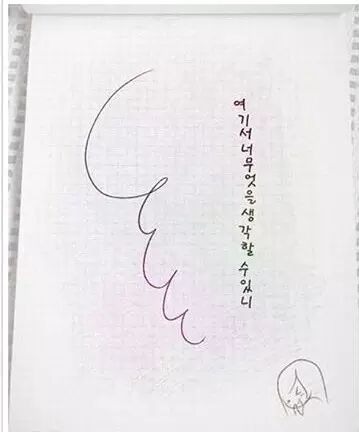 여기서 너 무엇을 생각할 수 있니